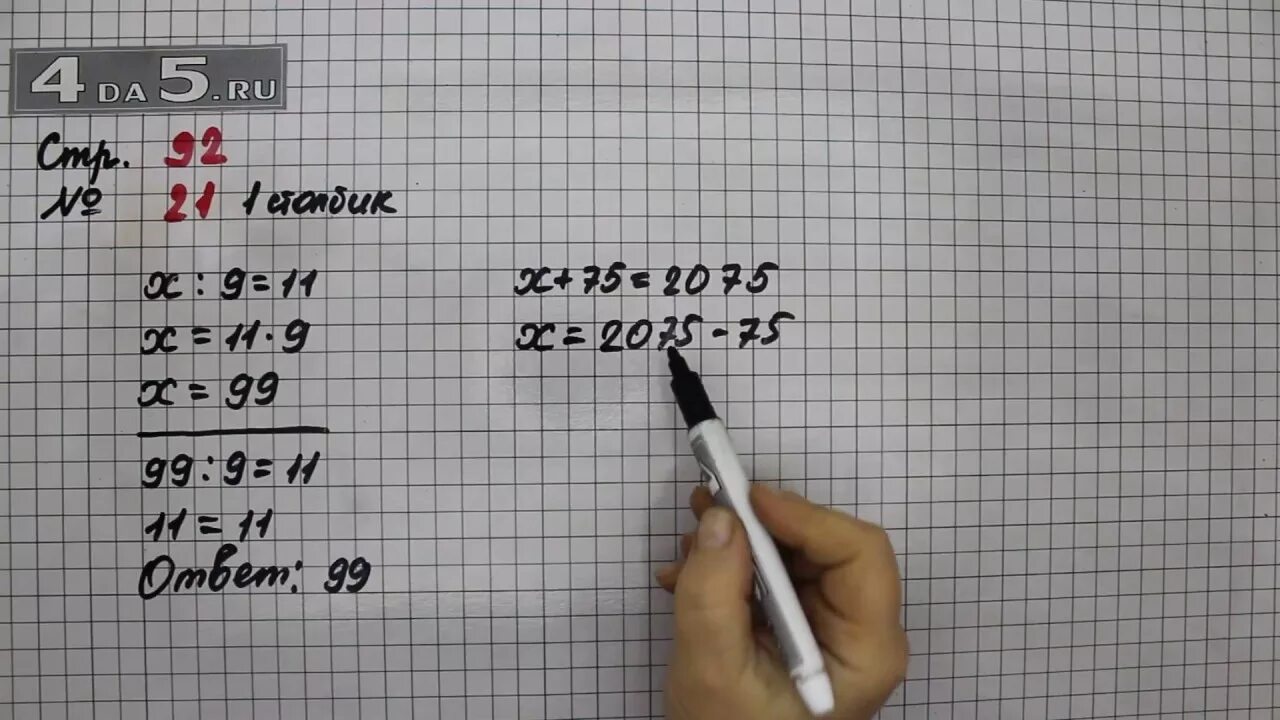 4DA5.RU
Стр. 92
№ 21 1 столбик
x : 9 = 11
x = 11 · 9
x = 99
99 : 9 = 11
11 = 11
Ответ: 99
x + 75 = 2075
x = 2075 - 75